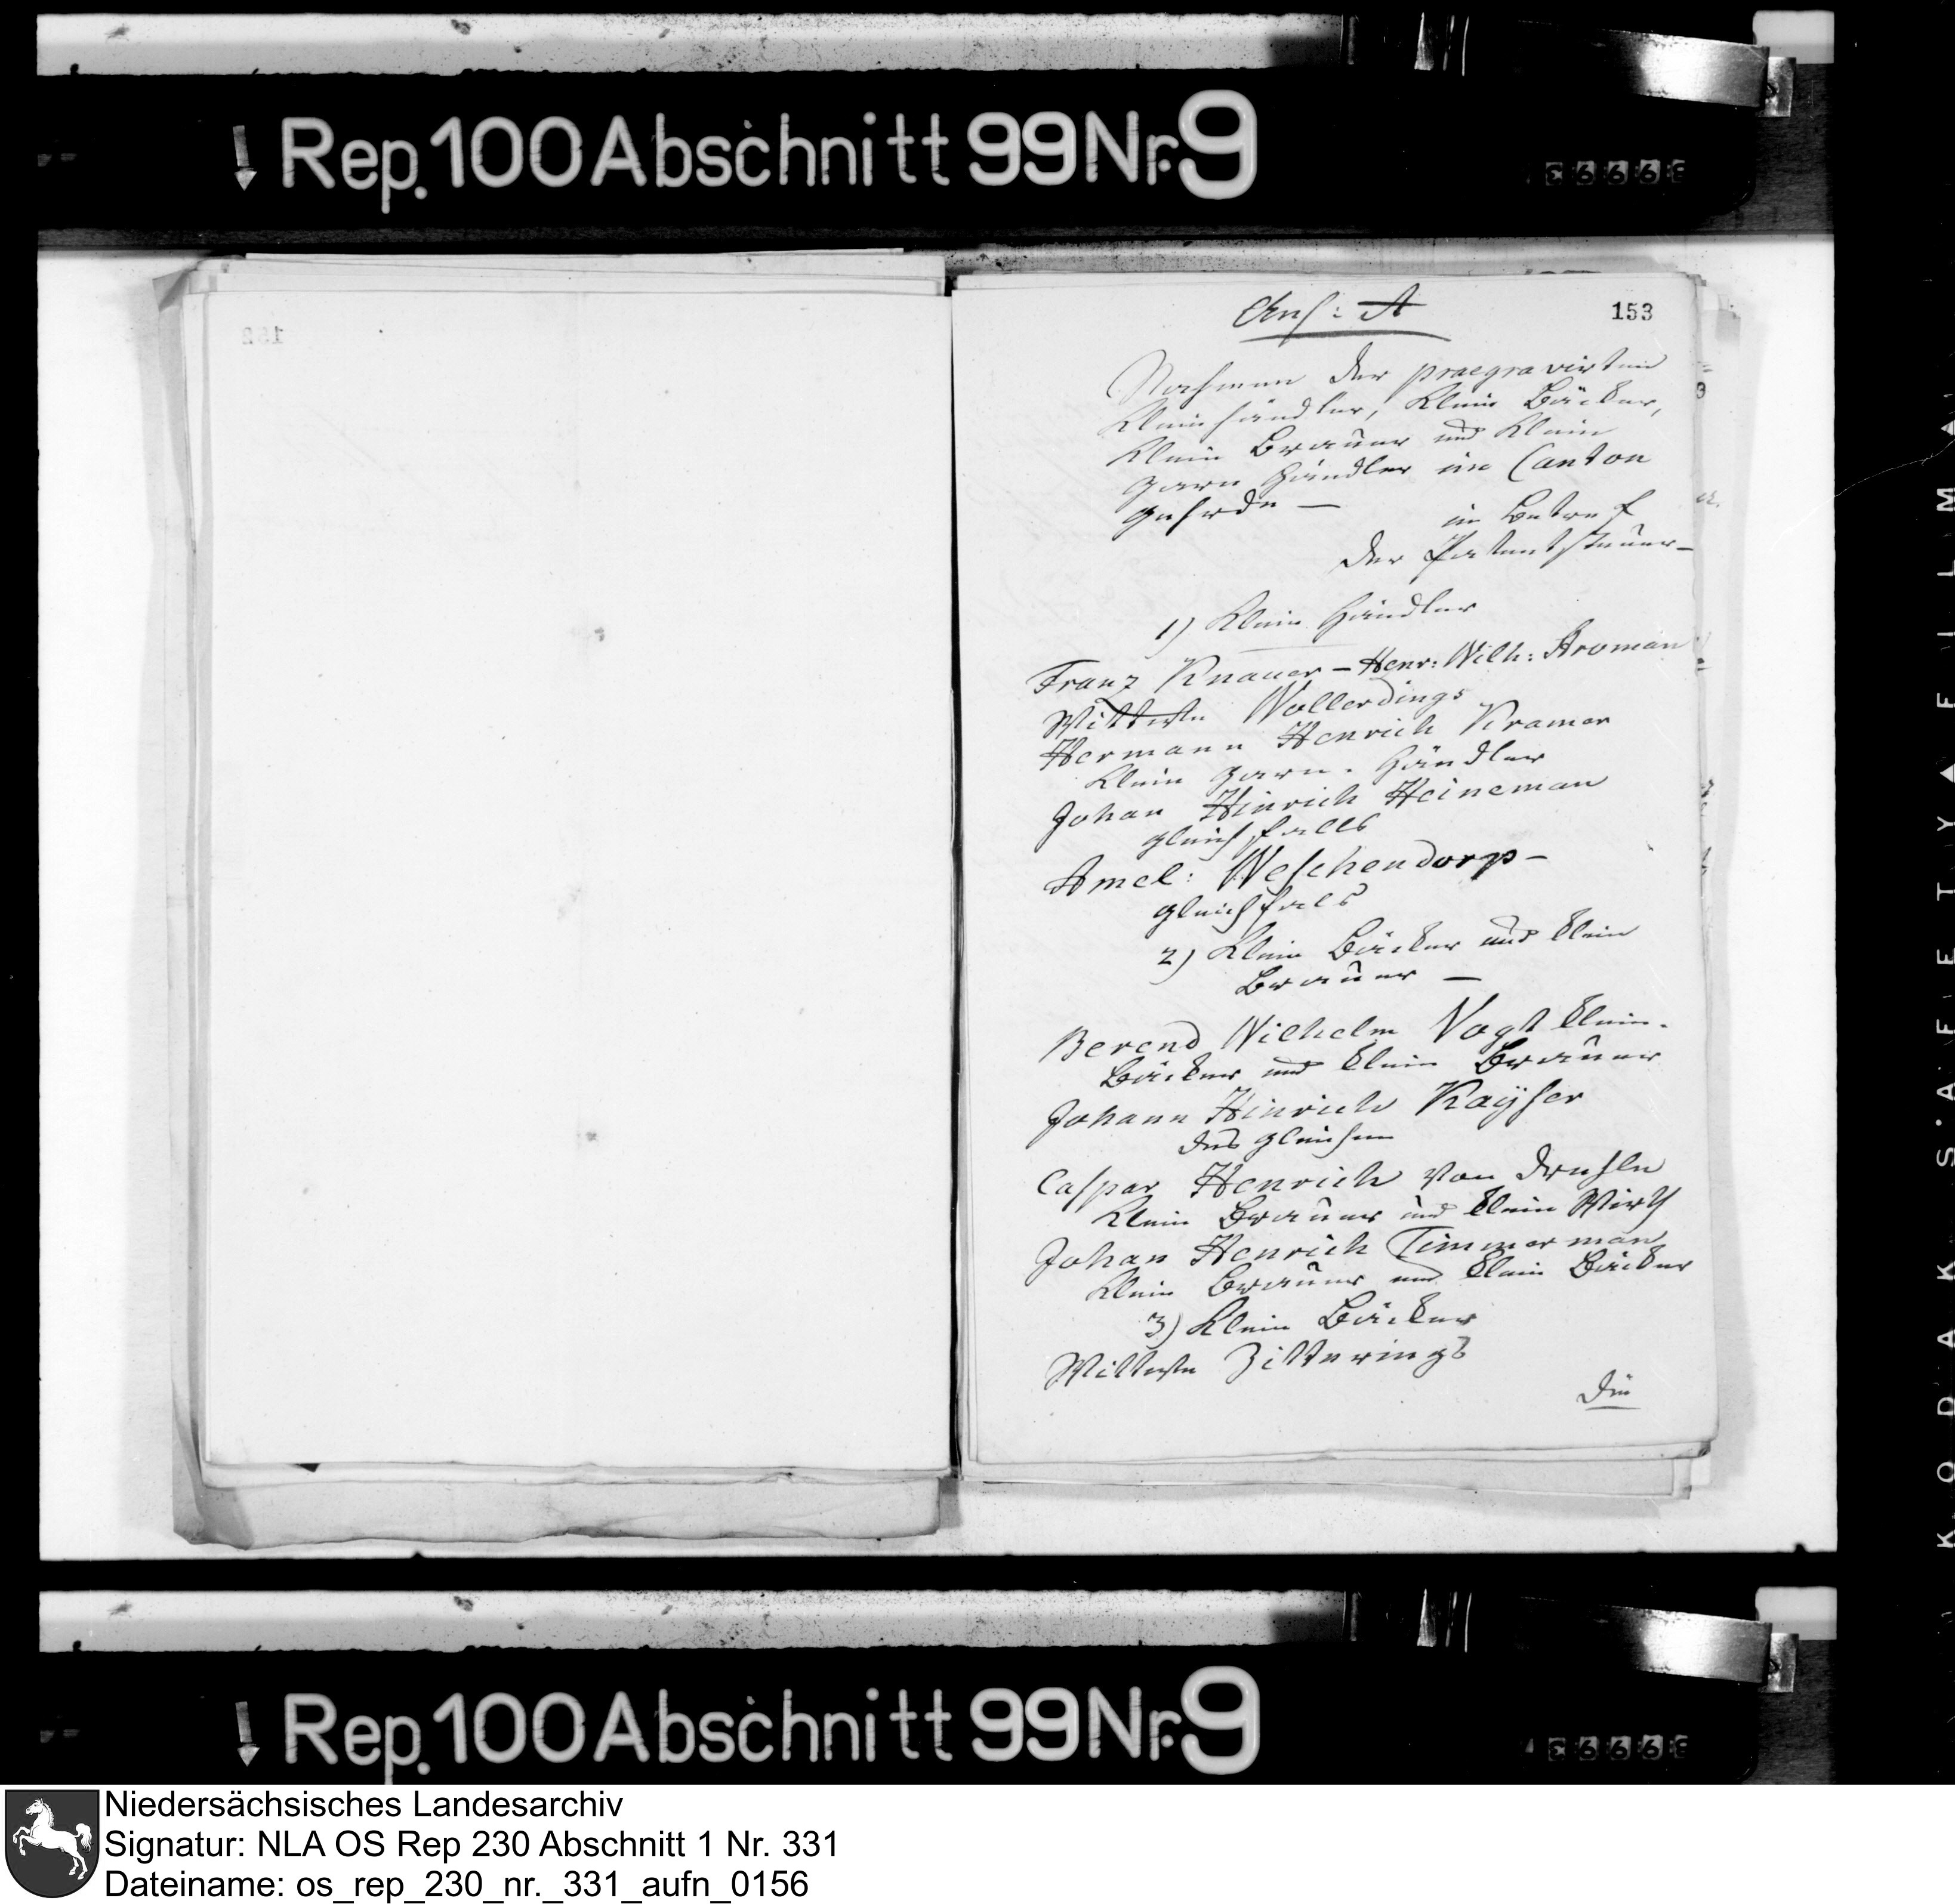 Rep. 100 Abschnitt 99 Nr. 9
Anl: A
153
Nahmen der praegravirten
Kleinhändler, Klein Bäcker,
Klein Brauer und Klein
Garn Händler im Canton
Gehrde —
in Betref
der Patentsteuer —
1) Klein Händler
Franz Knauer – Henr: Wilh: Aroman
Wittwe Wollerdings
Hermann Henrich Kramer
Klein Garn-Händler
Johan Hinrich Heineman
gleichfalls
Amel: Weschendorp –
gleichfals
2) Klein Bäcker und klein
Brauer —
Berend Wilhelm Vogt klein-
Bäcker und klein Brauer
Johann Hinrich Kaÿser
des gleichen
Caspar Henrich von Drehle
Klein Brauer und klein Wirth
Johan Henrich Timmerman
Klein Brauer und klein Bäcker
3) Klein Bäcker
Wittwe Zitterings
Die
Rep. 100 Abschnitt 99 Nr. 9
KODAK SAFETY FILM
Niedersächsisches Landesarchiv
Signatur: NLA OS Rep 230 Abschnitt 1 Nr. 331
Dateiname: os_rep_230_nr._331_aufn_0156